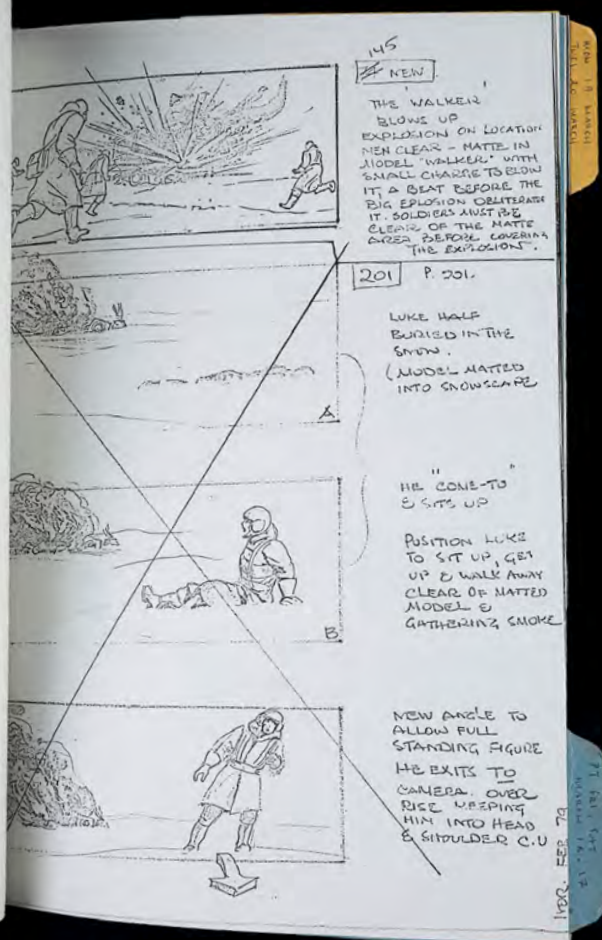 145
# NEW
THE 'WALKER'
BLOWS UP
EXPLOSION ON LOCATION
MEN CLEAR – MATTE IN
MODEL 'WALKER' WITH
SMALL CHARGE TO BLOW
IT, A BEAT BEFORE THE
BIG EPLOSION OBLITERATE
IT. SOLDIERS MUST BE
CLEAR OF THE MATTE
AREA BEFORE COVERING
THE EXPLOSION.
201 P. 201.
LUKE HALF
BURIED IN THE
SNOW.
(MODEL MATTED
INTO SNOWSCAPE
A
HE "COME-TO"
& SITS UP
POSITION LUKE
TO SIT UP, GET
UP & WALK AWAY
CLEAR OF MATTED
MODEL &
GATHERING SMOKE
B
NEW ANGLE TO
ALLOW FULL
STANDING FIGURE
HE EXITS TO
CAMERA. OVER
RISE KEEPING
HIM INTO HEAD
& SHOULDER C.U
IVOR. FEB 79
MON 19 MARCH
TUES 20 MARCH
MARCH 16. 17